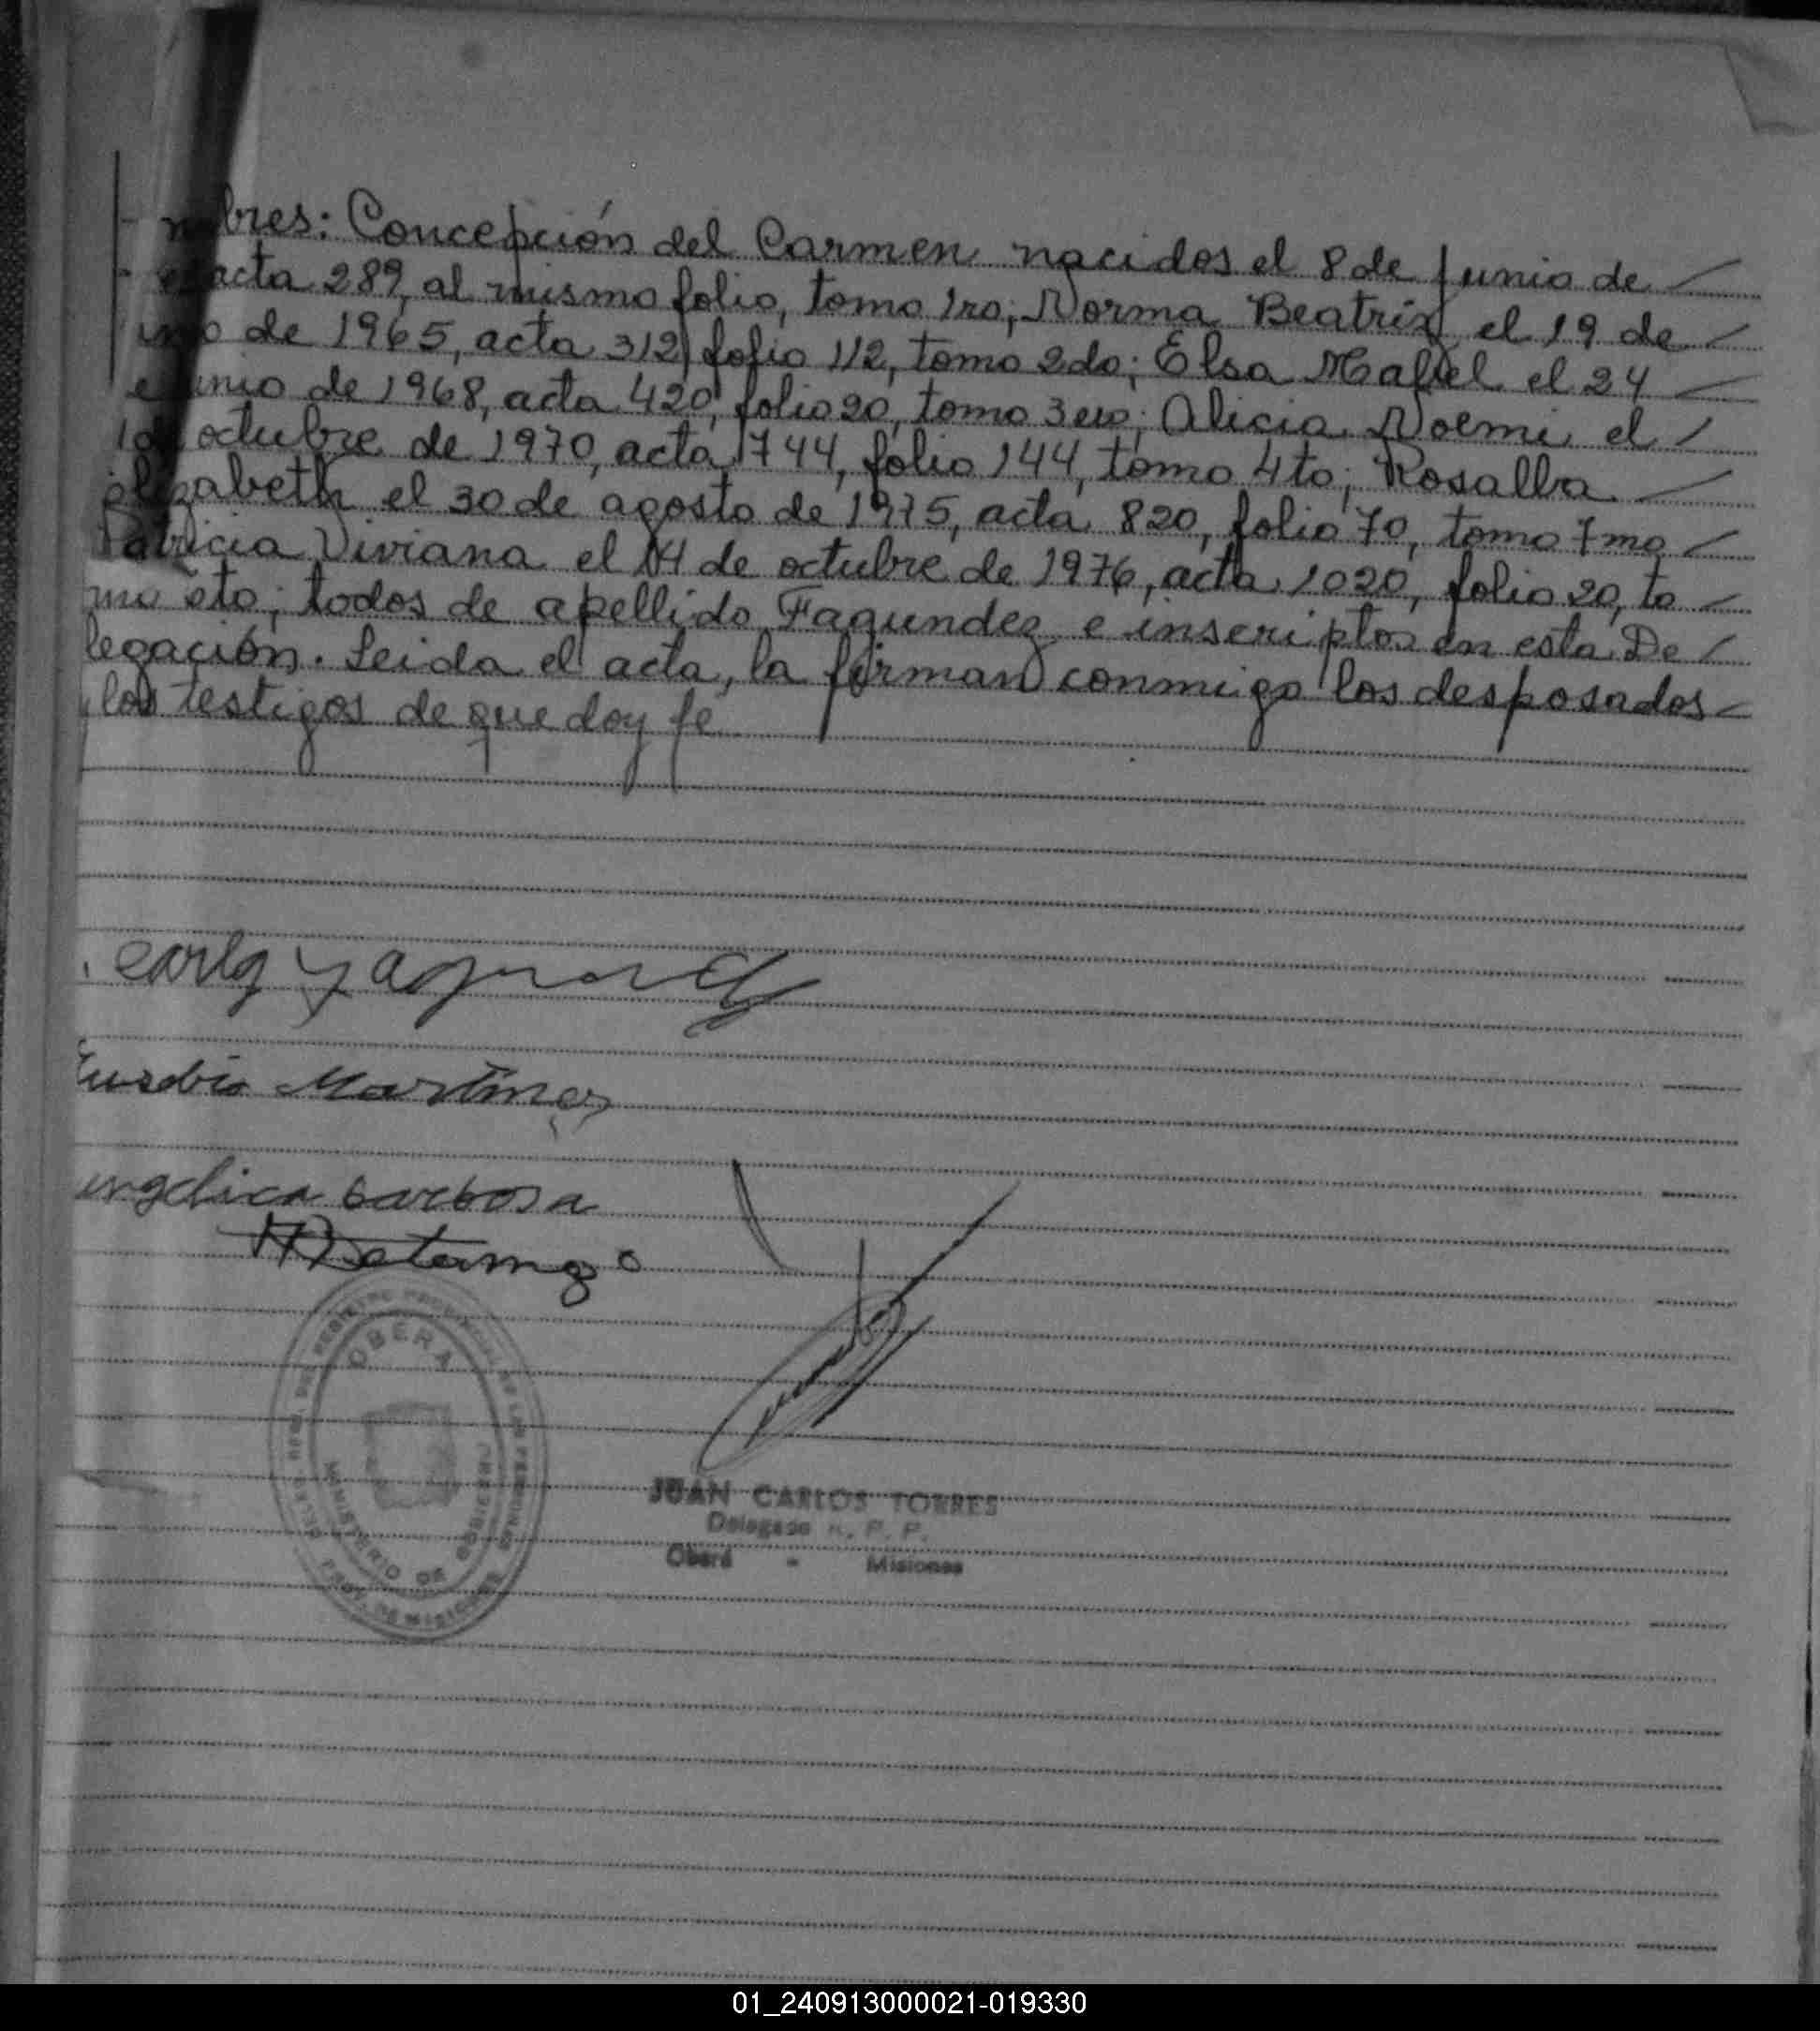 nombres: Concepción del Carmen nacidos el 8 de junio de
acta 289, al mismo folio, tomo 1ro; Norma Beatriz el 19 de
de 1965, acta 312, folio 112, tomo 2do; Elsa Mabel el 24
junio de 1968, acta 420, folio 20, tomo 3ero; Alicia Noemi el
octubre de 1970, acta 1744, folio 144, tomo 4to; Rosalba
Elizabeth el 30 de agosto de 1975, acta 820, folio 70, tomo 7mo
Patricia Viviana el 14 de octubre de 1976, acta 1020, folio 20, to
mo 8to; todos de apellido Fagundez e inscriptos en esta De
legación. Leida el acta, la firman conmigo los desposados
y los testigos de que doy fe
Eusebio Martinez
angelica barbosa
OBERA
MINISTERIO DE GOBIERNO
PROV. DE MISIONES
JUAN CARLOS TORRES
Delegado R. P. P.
Oberá - Misiones
01_240913000021-019330